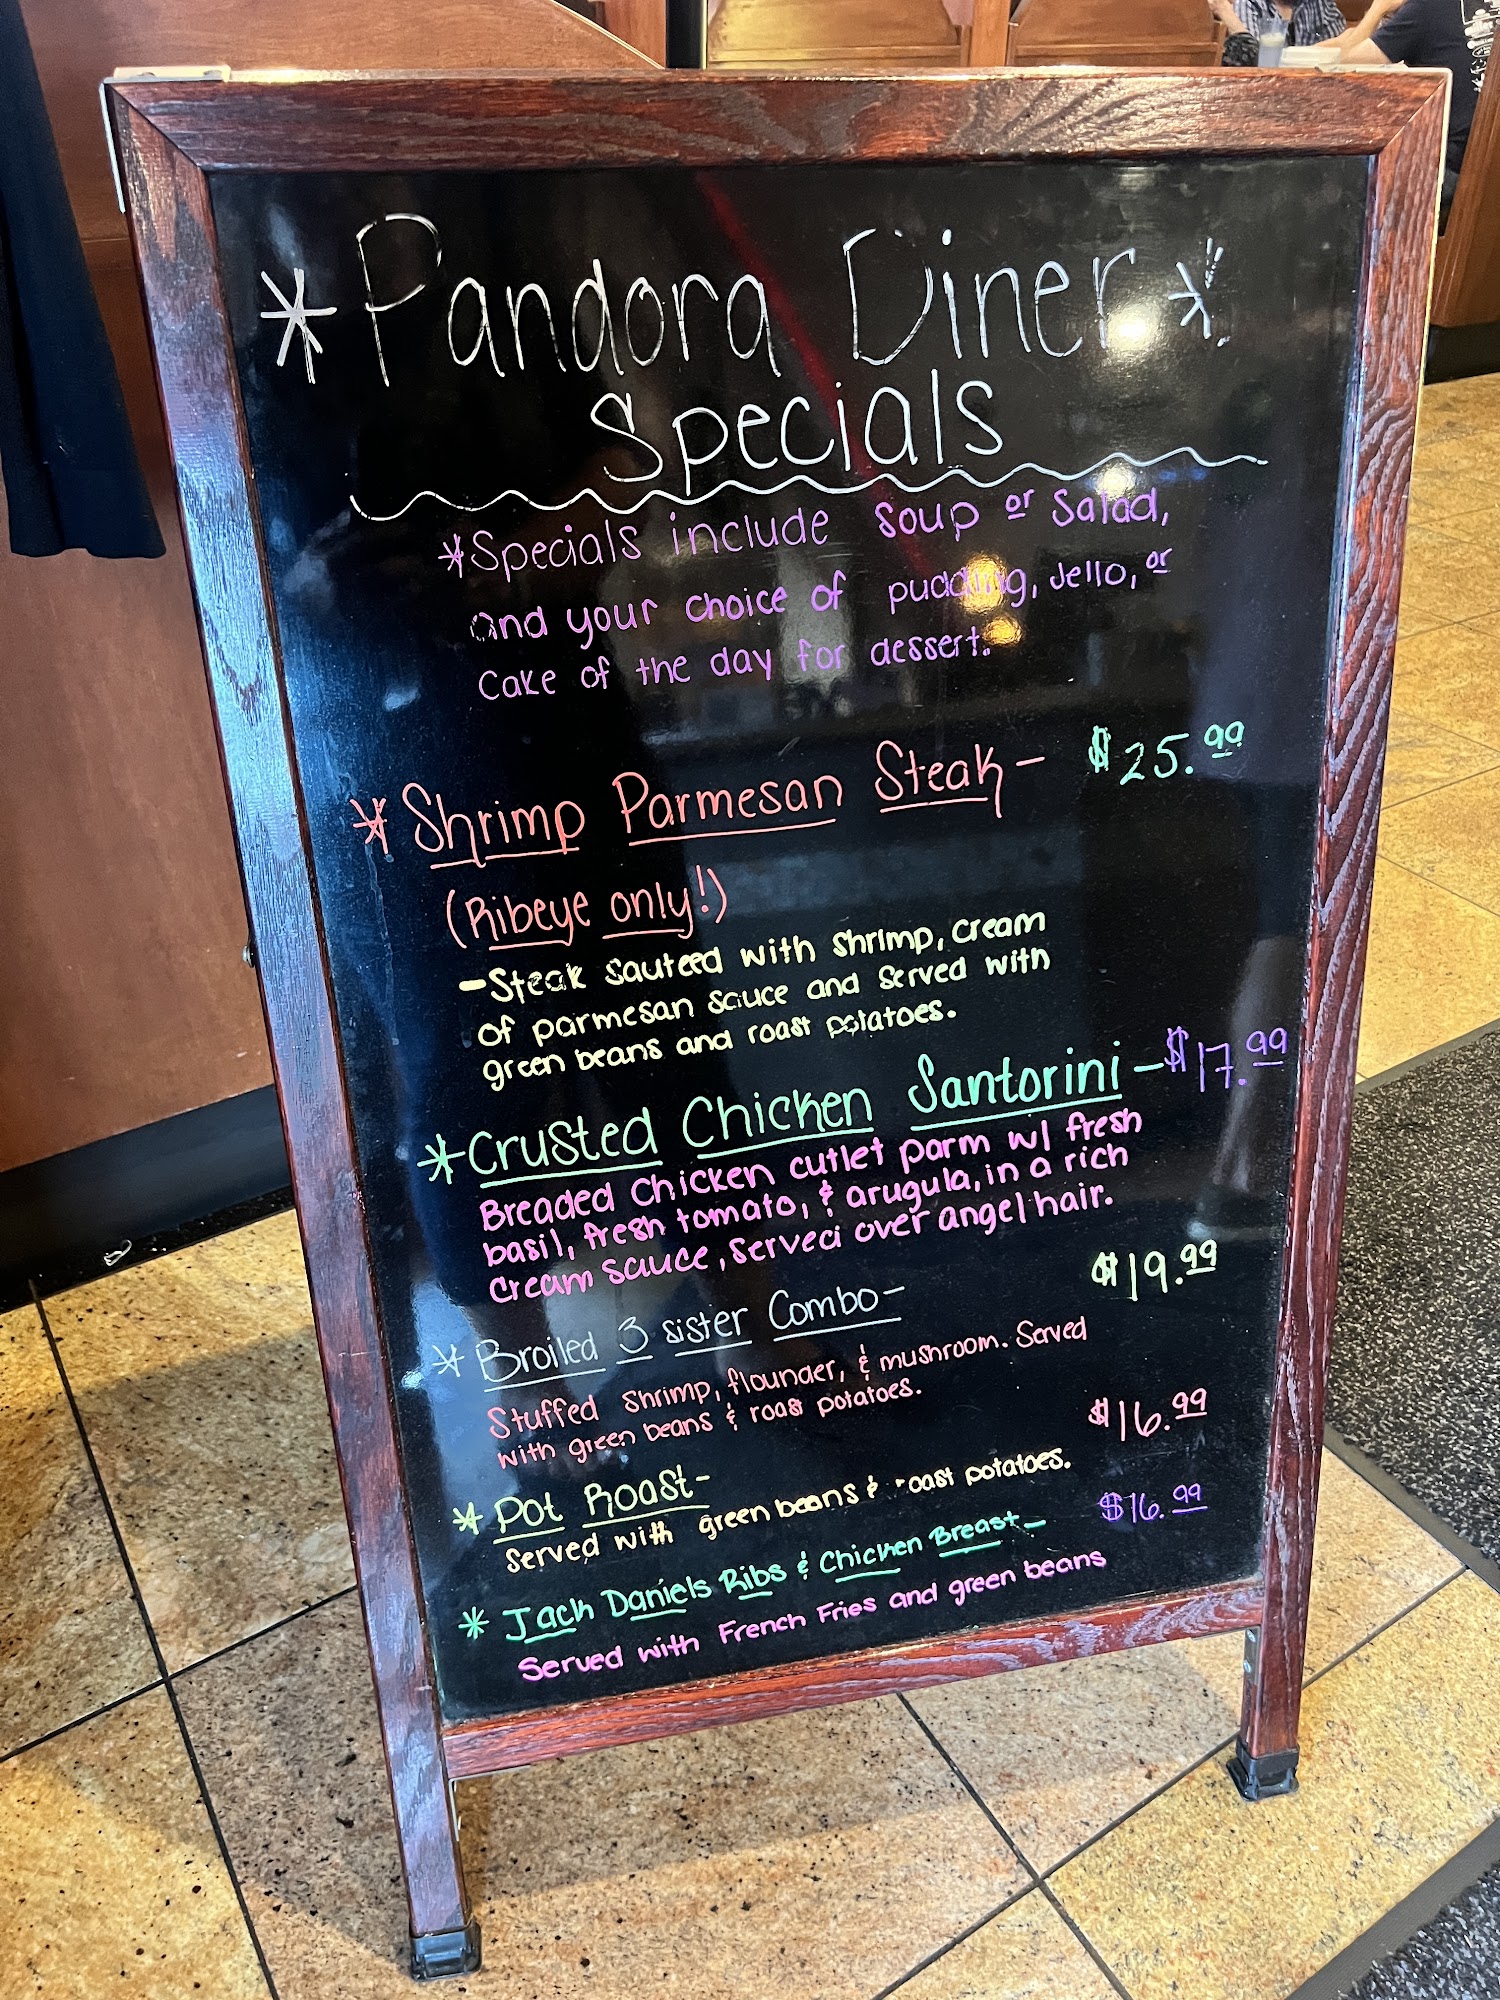 *Pandora Diner*
Specials
*Specials include Soup or Salad,
and your choice of pudding, Jello, or
cake of the day for dessert.
*Shrimp Parmesan Steak- $25.99
(Ribeye only!)
-Steak sauteed with shrimp, cream
of parmesan sauce and served with
green beans and roast potatoes.
*Crusted Chicken Santorini-$17.99
Breaded Chicken cutlet parm w/ fresh
basil, fresh tomato, & arugula, in a rich
cream sauce, served over angel hair.
*Broiled 3 sister Combo- $19.99
Stuffed shrimp, flounder, & mushroom. Served
with green beans & roast potatoes.
*Pot Roast- $16.99
served with green beans & roast potatoes.
*Jack Daniels Ribs & Chicken Breast- $16.99
Served with French Fries and green beans